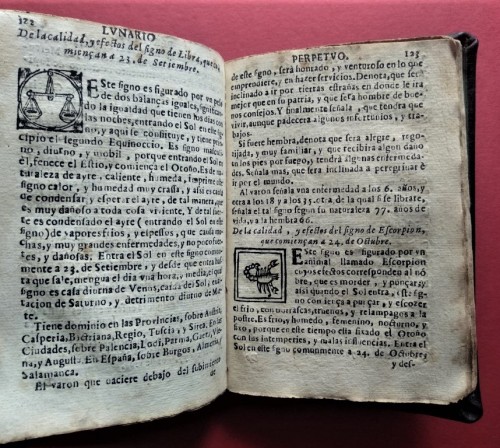 122
LVNARIO
De la calidad, y efectos del signo de Libra, que
miençan a 23. de Setiembre.
ESte signo es figurado por vn peso
de dos balanças iguales, significan
do la igualdad que tienen los dias con
las noches, entrando el Sol en este sig
no, y aqui se constituye, y tiene prin
cipio el segundo Equinoccio. Es signo mascul
no, diurno, y mobil, porque entrando el Sol en
èl, fenece el Estio, y comiença el Otoño. Es de na
turaleza de ayre, caliente, humeda, imprime
signo calor, y humedad muy crassa, y assi es causa
de condensar y espesar el ayre, de tal manera, que
es muy dañoso a toda cosa viviente. Y de su
te es condensado el ayre (entrando el Sol en este
signo) de vapores frios, y espessos, que causa mu
chas, y muy grandes enfermedades, y no poco fuer
tes, y dañosas. Entra el Sol en este signo comun
mente a 23. de Setiembre, y desde que entra has
ta que sale, mengua el dia vna hora, y media, el qual
signo es casa diurna de Venus, caida del Sol, exalta
cion de Saturno, y detrimento diurno de Mar
te.
Tiene dominio en las Provincias, sobre Austria,
Casperia, Bactriana, Regio, Tuscia, y Siria. En las
Ciudades, sobre Palencia, Lodi, Parma, Gaeta, Vie
na, y Augusta. En España, sobre Burgos, Almeria, y
Salamanca.
El varon que naciere debajo del subimiento
de
PERPETVO.
123
de este signo, serà honrado, y venturoso en lo que
emprendiere, y en hacer servicios. Denota, que serà
inclinado a ir por tierras estrañas en donde le irà
mejor que en su patria, y que serà hombre de bue-
nos consejos. Y finalmente señala, que tendrà que
vivir, aunque padecerà algunos infortunios, y tra-
bajos.
Si fuere hembra, denota que serà alegre, rego-
zijada, y muy familiar, y que recibirà algun daño
en los pies por fuego, y tendrà algunas enfermeda-
des. Señala mas, que serà inclinada a peregrinar
è ir por el mundo.
Al varon señala vna enfermedad a los 6. años, y
otra a los 18 y a los 35. otra, de la qual si se librare,
señala el tal signo segun su naturaleza 77. años de
vida, y a la hembra 66.
De la calidad, y efectos del signo de Escorpion,
que comiençan a 24. de Octubre.
ESte signo es figurado por vn
animal llamado Escorpion
cuyos efectos corresponden al nõ
bre, que es morder, y punçar; y assi
quando el Sol entra, este sig-
no comiença a punçar, y escocer
el frio, con borrascas, truenos, y relampagos a la
postre. Es frio, humedo, femenino, nocturno, y
fixo, porque en este tiempo esta fixado el Otoño
con las intemperies, y malas influencias. Entra el
Sol en este signo comunmente a 24. de Octubre,
y des-